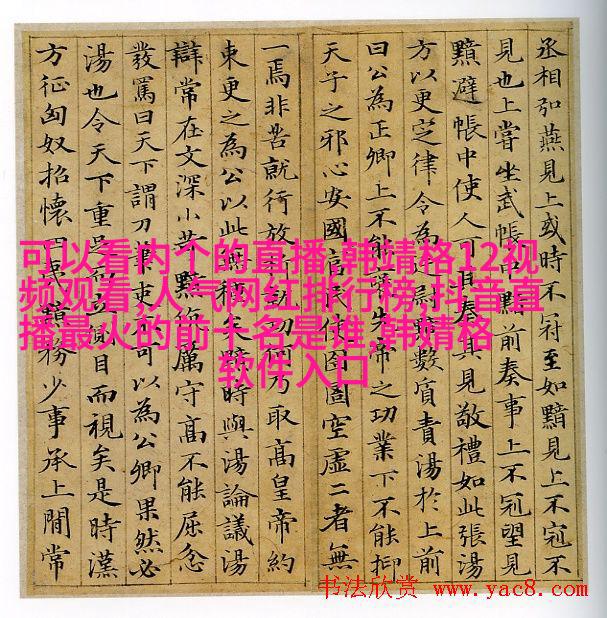 丞相弘燕見上或時不冠至如黯見上不冠不
見也上嘗坐武帳中黯前奏事上不冠望見
黯避帳中使人可其奏其見敬禮如此張湯
方以更定律令為廷尉黯數質責湯於上前
曰公為正卿上不能褒先帝之功業下不能抑
天子之邪心安國富民使囹圄空虛二者無
一焉非苦就行放析就功何乃取高皇帝約
束更之為公以此無種矣黯時與湯論議湯
辯常在文深小苛黯伉厲守高不能屈忿
發罵曰天下謂刀筆吏不可以為公卿果然必
湯也令天下重足而立側目而視矣是時漢
方征匈奴招懷四夷黯務少事承上間常
可以看内个的直播,韩婧格12视
频观看,人气网红排行榜,抖音直
播最火的前十名是谁,韩婧格
软件入口
书法欣赏 www.yac8.com